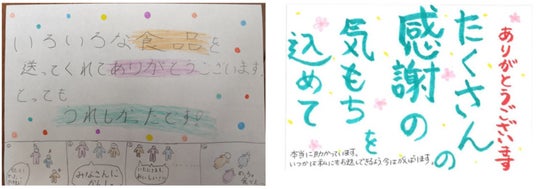 いろいろな食品を
送ってくれてありがとうございます。
とっても
うれしかったです!
みなさんに
かんしゃ
ありがとうございます
たくさんの
感謝の
気もちを
込めて
本当に助かっています。
いつかは私にもお返しできるよう今はがんばります。